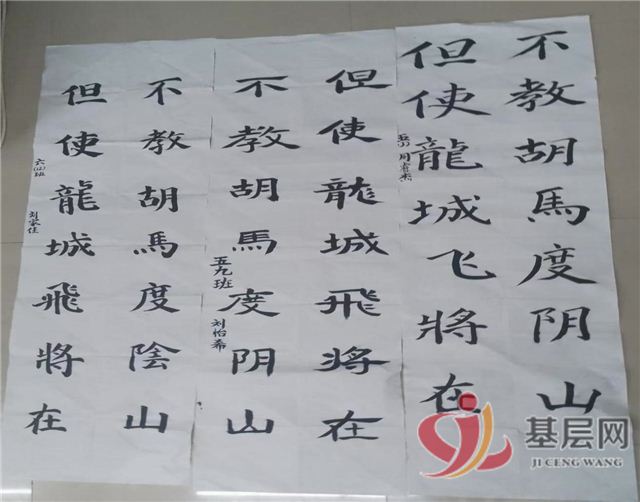 但使龍城飛將在
不教胡馬度陰山
但使龍城飛將在
不教胡馬度阴山
五九班 刘怡希
但使龍城飞將在
不教胡馬度阴山
基层网
JI CENG WANG